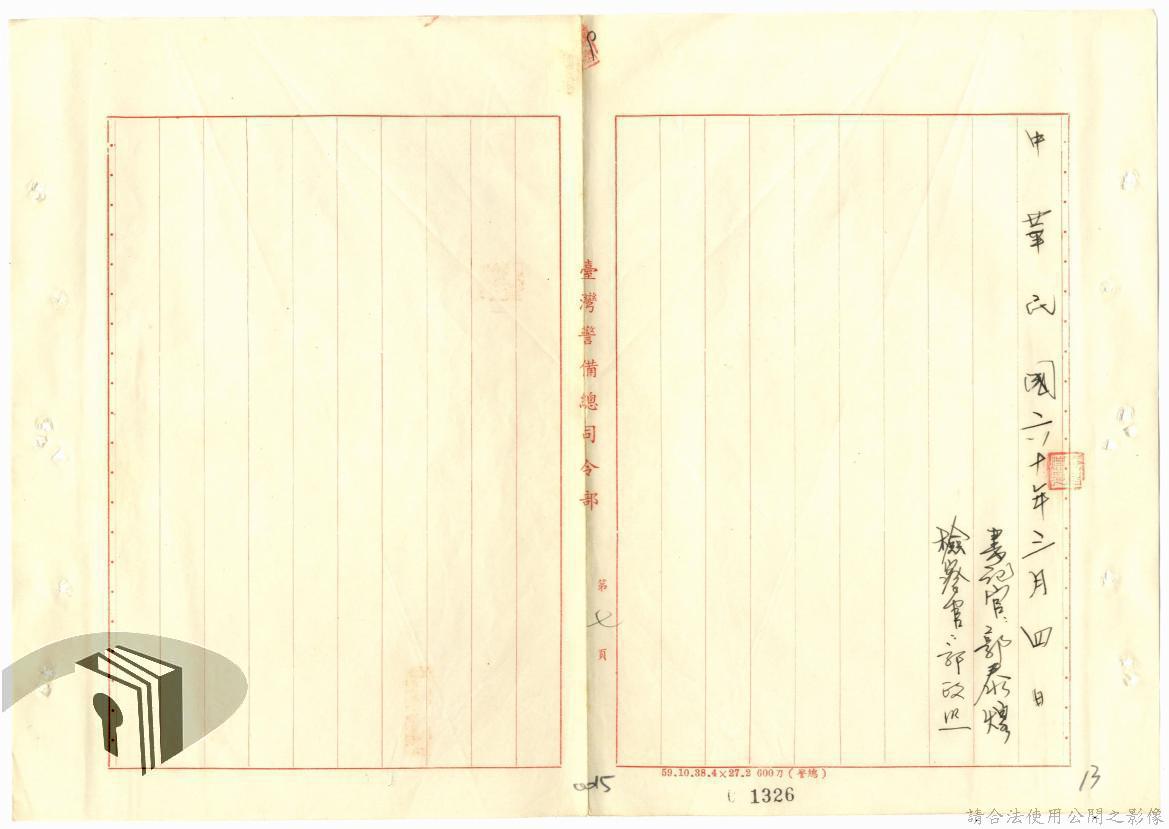 中華民國六十年三月四日
書記官:郭泰煌
檢察官:郭政熙
臺灣警備總司令部
第七頁
59.10.38.4×27.2 600刀(警總)
1326
0015
13
請合法使用公開之影像